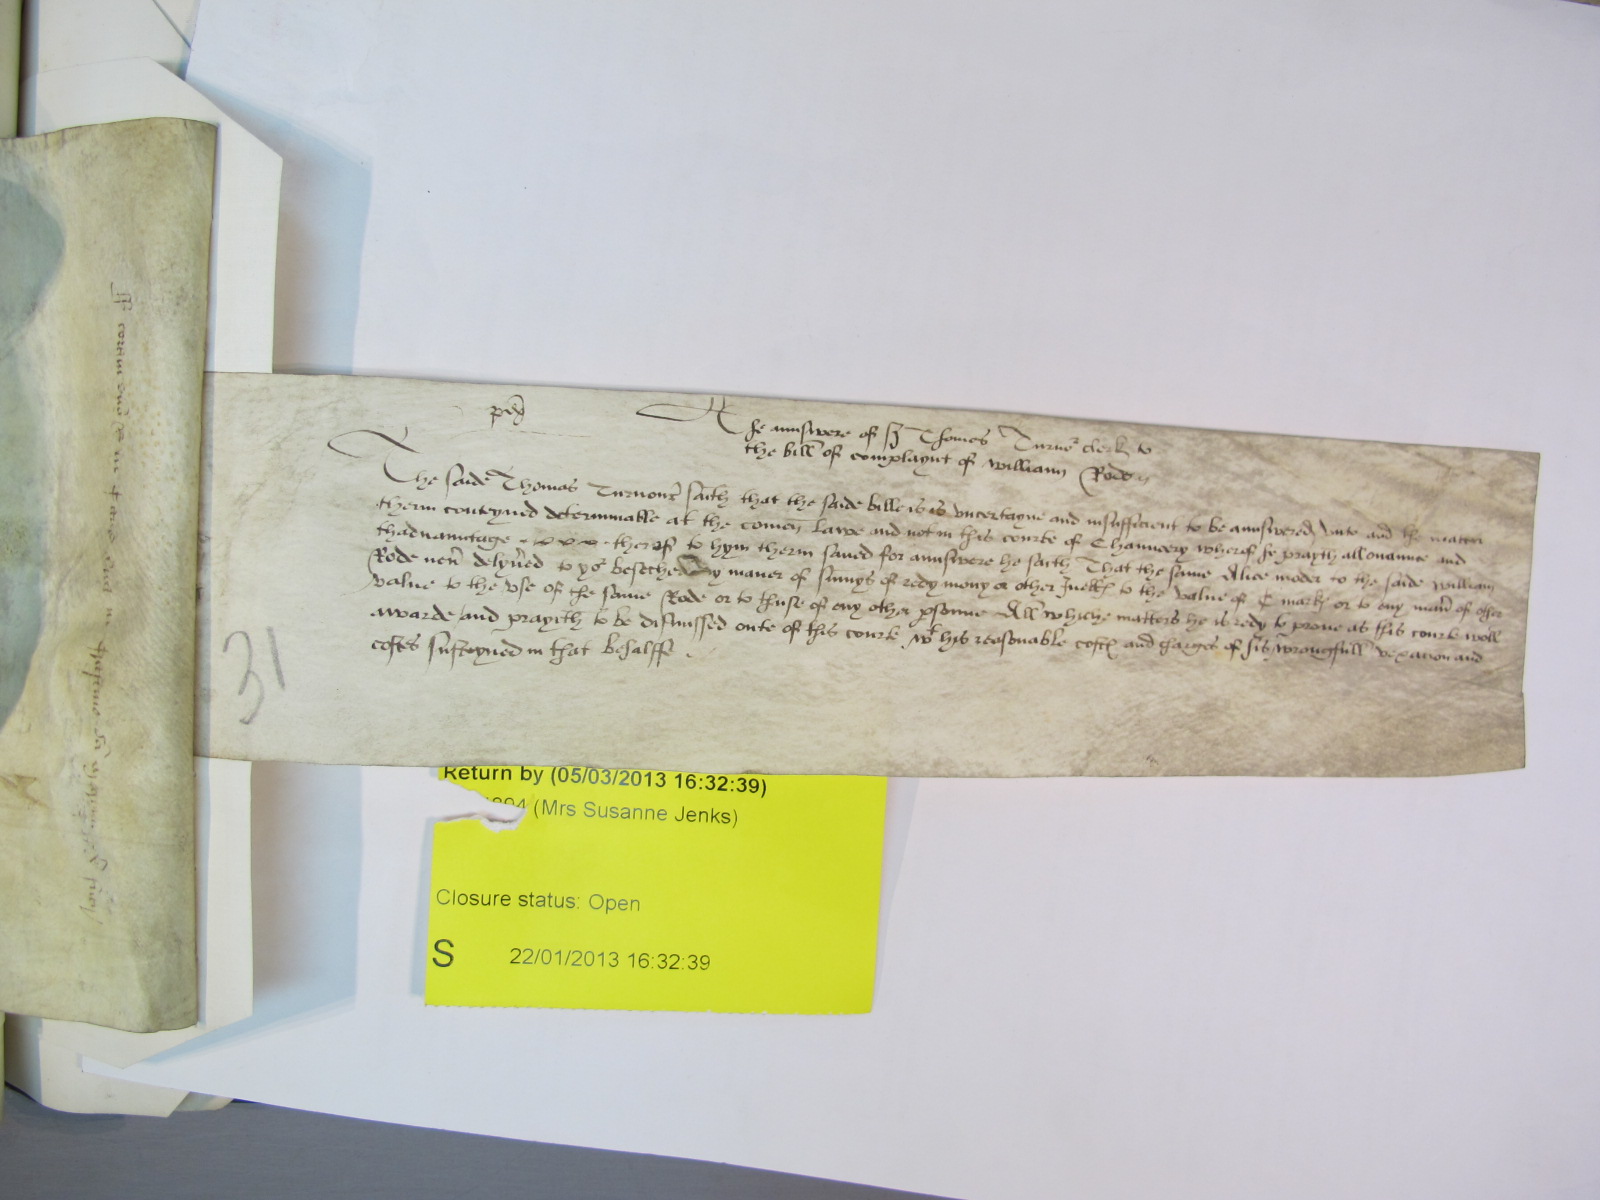 The aunswere of Sr Thomas Turnor clerk to
the bill of complaynt of William Rode
The saide Thomas Turnour saith that the saide bille is is uncertayne and insufficient to be aunswered unto and the matter
therin conteynid determinable at the comen lawe and not in this courte of Chauncery wherof he prayth allouaunce and
thaduauntage therof to hym therin saued for aunswere he saith That the same Alice moder to the saide William
Rode neuer delyuered to yor besecher Any maner of summys of redy mony or other Juellx to the value of C markx or to eny maner of other
value to the use of the same Rode or to thuse of eny other persone All whiche matters he is redy to proue as this courte woll
awarde and prayith to be dismissed oute of this courte wt his reasonable costx and charges of his wrongfull vexacion and
costes susteyned in that behalff
31
Return by (05/03/2013 16:32:39)
(Mrs Susanne Jenks)
Closure status: Open
S 22/01/2013 16:32:39